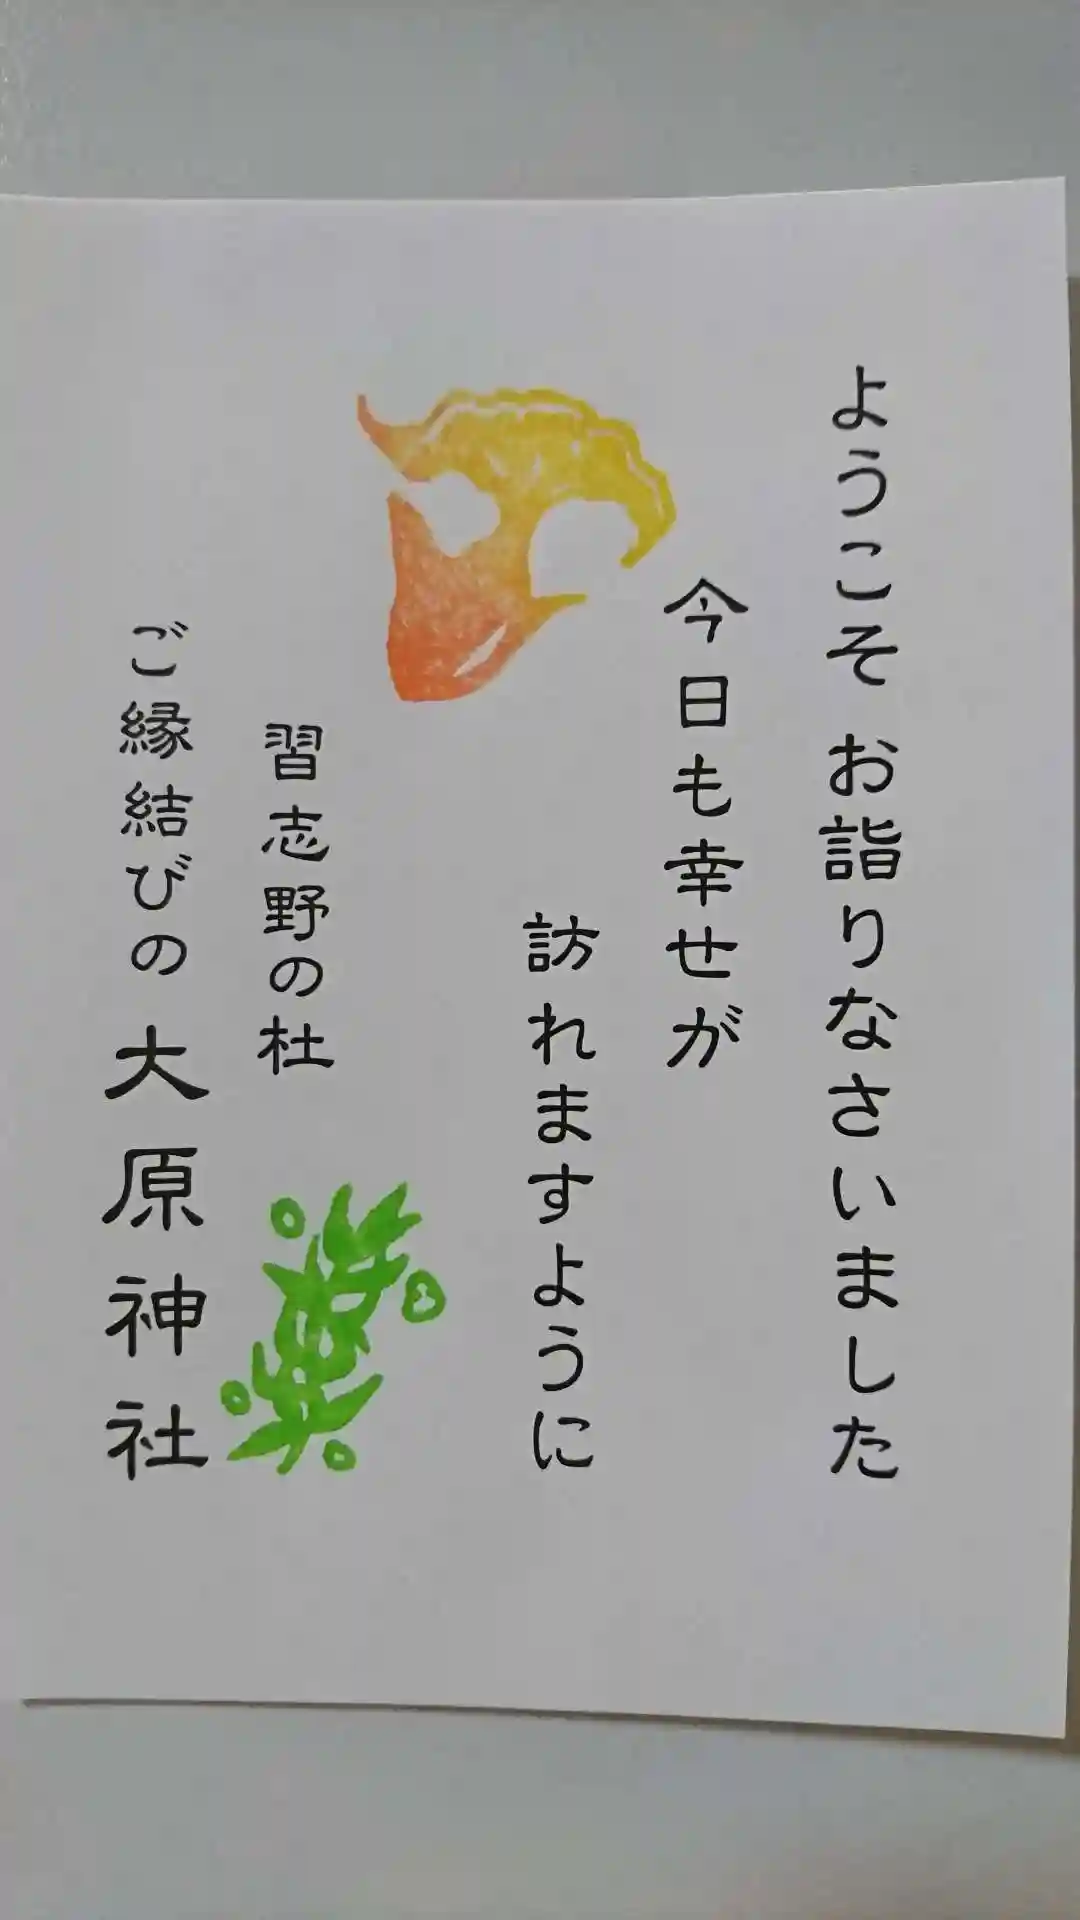 ようこそ お詣りなさいました
今日も幸せが
訪れますように
習志野の杜
ご縁結びの 大原神社